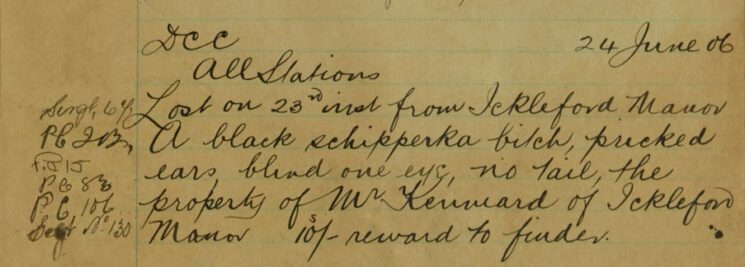 DCC
24 June 06
All Stations
Lost on 23rd inst from Ickleford Manor
A black schipperka bitch, pricked
ears, blind one eye, no tail, the
property of Mr Kennard of Ickleford
Manor 10s/- reward to finder.
PC
PC 83
PC, 106
No 130